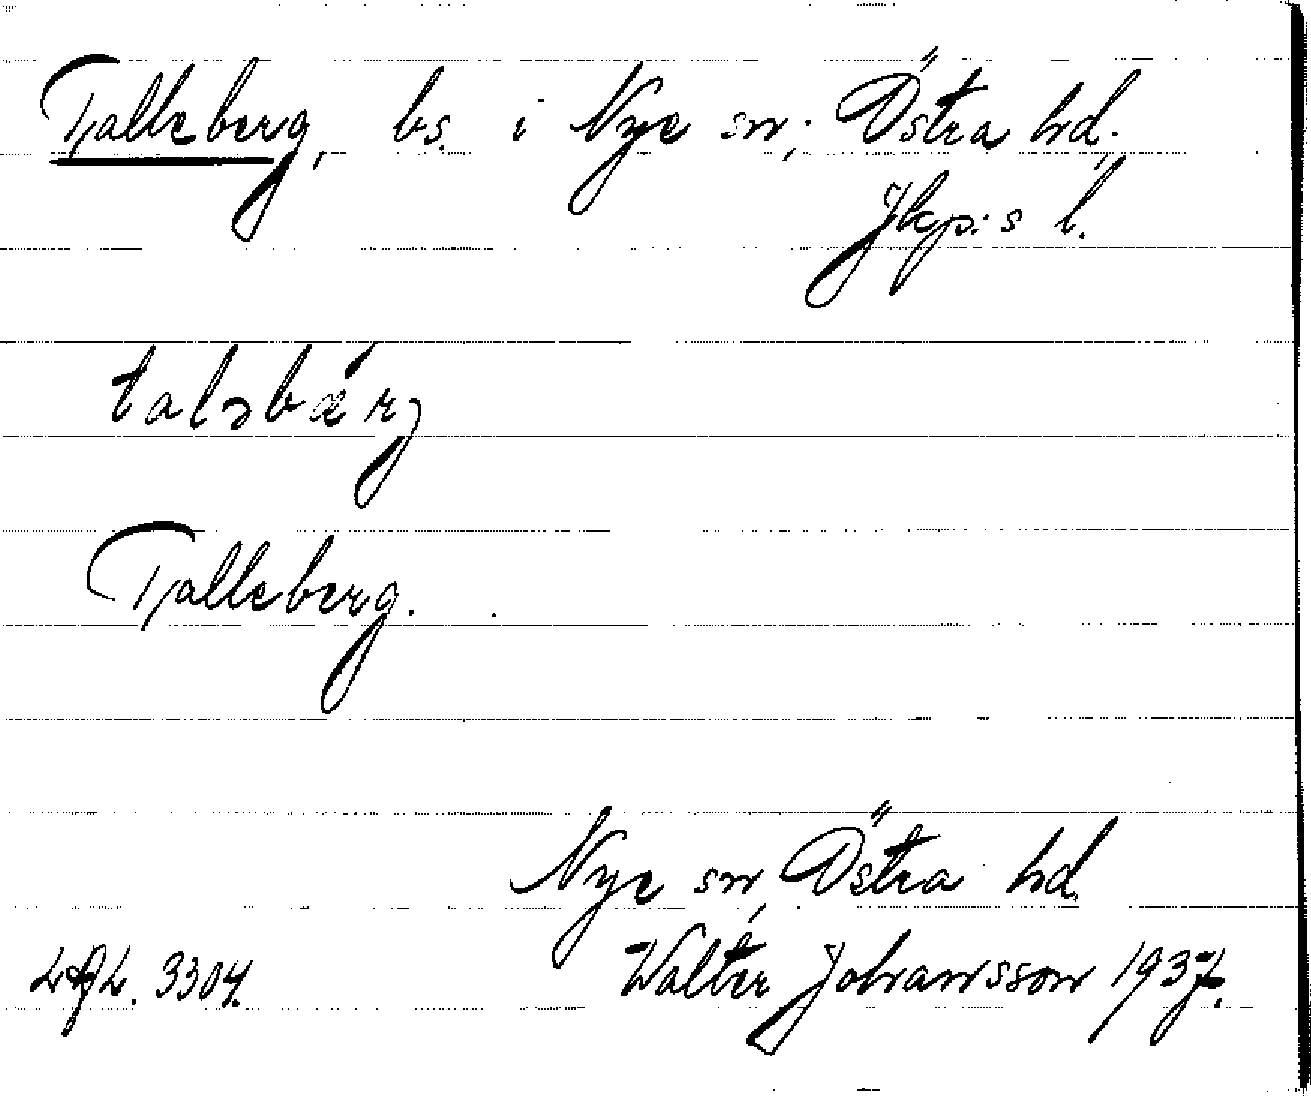 Talleberg, bs. i Nye sn, Östra hd,
Jkp:s l.
taləbǽrj
Talleberg.
Nye sn, Östra hd.
LAL. 3304. Walter Johansson 1937.